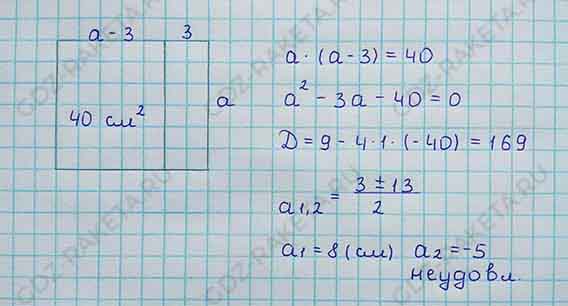 a - 3 3
40 см² a
a · (a - 3) = 40
a² - 3a - 40 = 0
D = 9 - 4 · 1 · (-40) = 169
a₁,₂ = (3 ± 13) / 2
a₁ = 8 (см) a₂ = -5
неудовл.
GDZ-RAKETA.RU